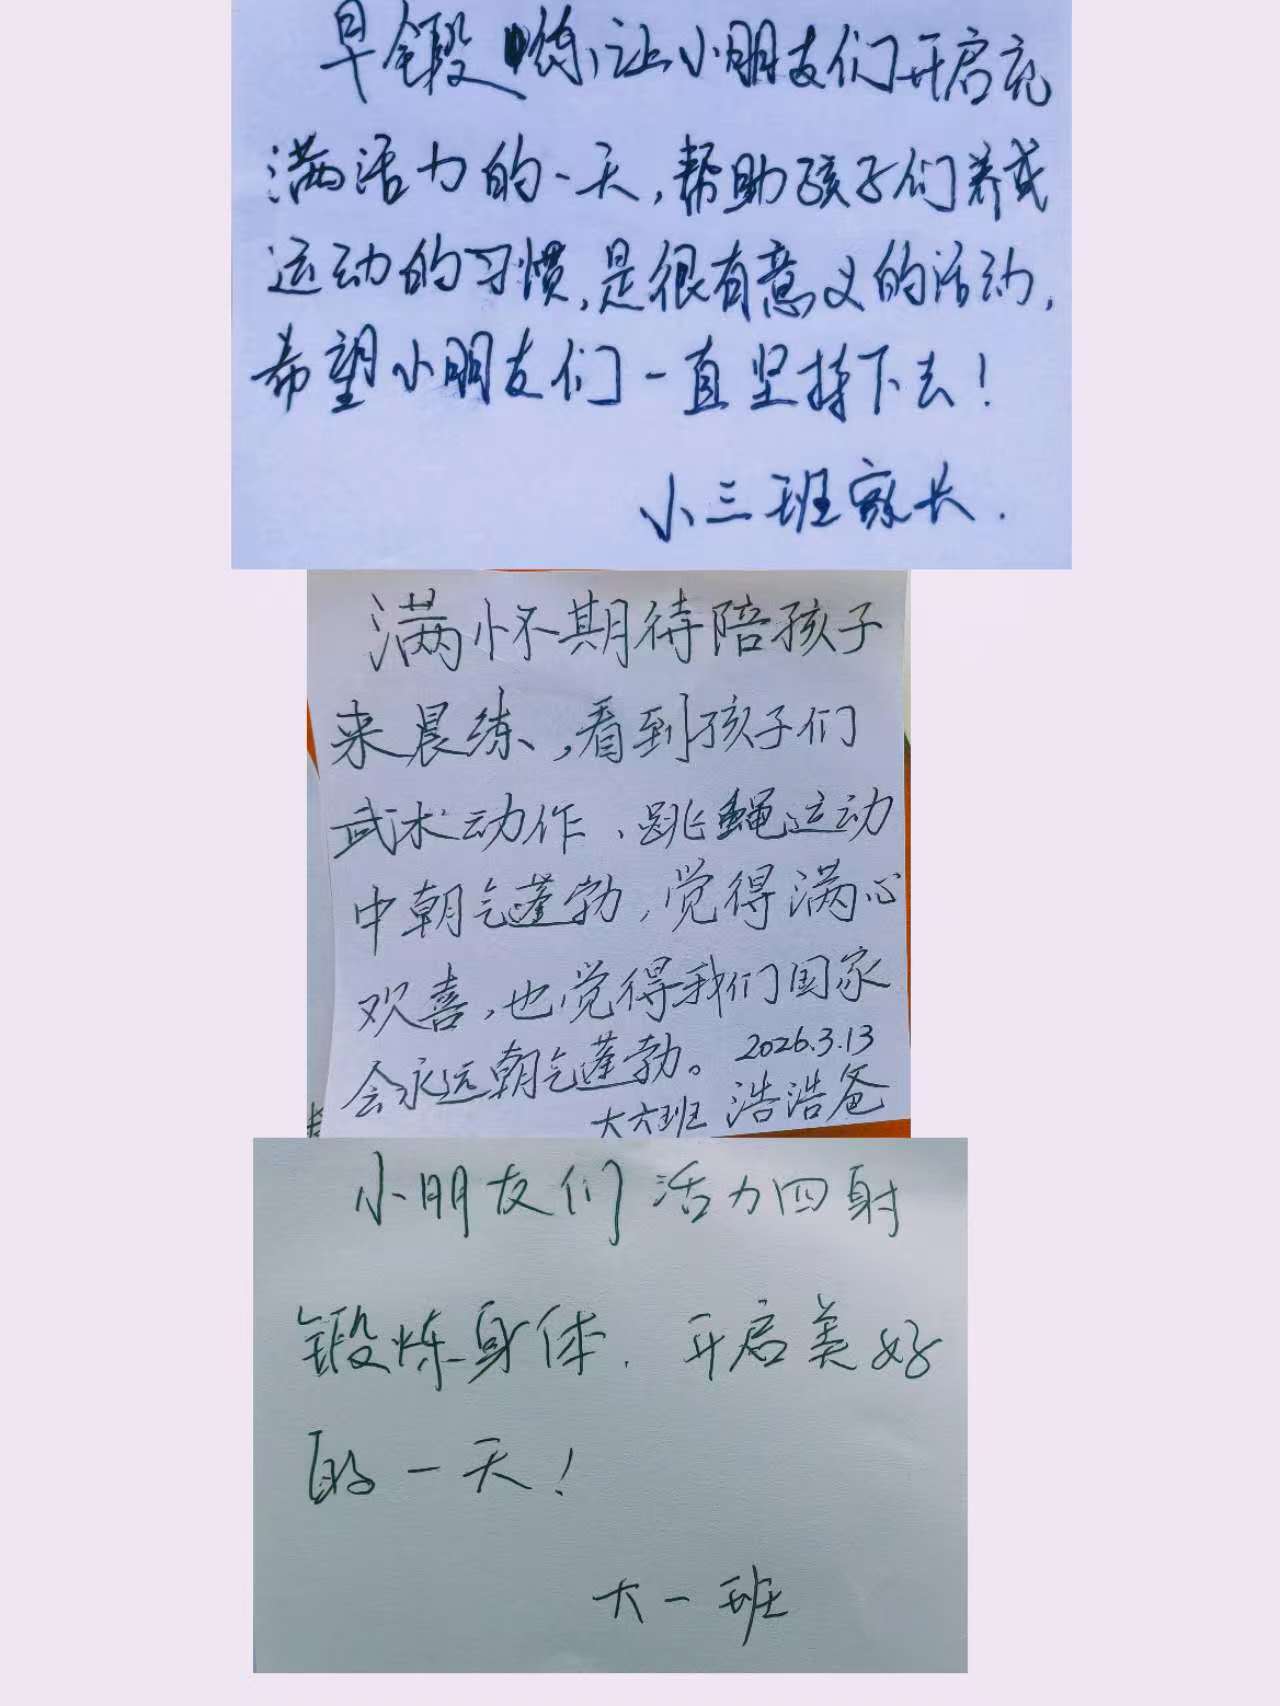 早锻炼,让小朋友们开启充
满活力的一天,帮助孩子们养成
运动的习惯,是很有意义的活动,
希望小朋友们一直坚持下去!
小三班家长.
满怀期待陪孩子
来晨练,看到孩子们
武术动作、跳蝇运动
中朝气蓬勃,觉得满心
欢喜,也觉得我们国家
会永远朝气蓬勃。 2026.3.13
大六班 浩浩爸
小朋友们活力四射
锻炼身体.开启美好
的一天!
大一班